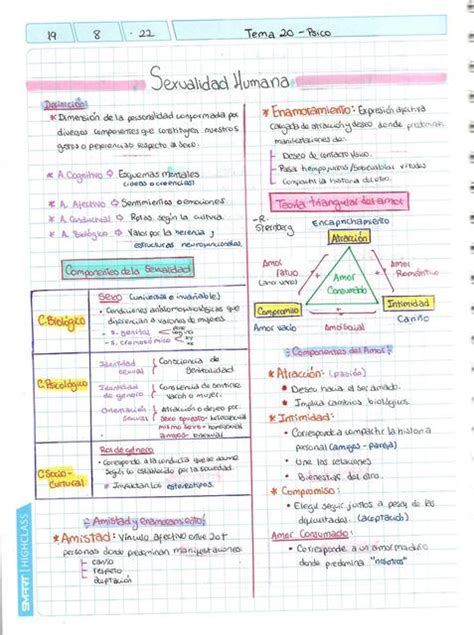 19 8 22 Tema 20 - Psico
Sexualidad Humana
Definición
* Dimensión de la personalidad conformada por
diversos componentes que constituyen nuestros
respecto al sexo.
* A. Cognitivo → Esquemas mentales
(ideas o creencias)
* A. Afectivo → Sentimientos o emociones
* A. Conductual → Rotas. según la cultura.
* A. Biológico → Valor por la herencia y
estructuras neurofuncionales
Componentes de la Sexualidad
C. Biológico
Sexo (universal e invariable)
• Condiciones
que
diferencian a varones de mujeres.
- S. genital
- S. cromosómico
C. Psicológico
Identidad sexual
Consciencia de
genitalidad
Identidad de género
Consciencia de sentirse
varón o mujer.
Orientación sexual
Atracción o deseo por
sexo opuesto - heterosexual
mismo sexo - homosexual
ambos - bisexual
C. Socio-Cultural
Rol de género
• Corresponde a la conducta que se asume
según lo establecido por la sociedad.
* Impactan los estereotipos.
Amistad y enamoramiento
* Amistad: Vínculo afectivo entre 2 o +
personas donde predominan manifestaciones
cariño
respeto
aceptación
* Enamoramiento: Expresión afectiva
cargada de atracción y deseo donde predominan
manifestaciones de:
- Deseo de contacto físico.
- Pasar tiempo
- Compartir la historia del otro.
Teoría triangular del amor
- R. Sternberg
Encaprichamiento
Atracción
Amor fatuo
(amor vacío)
Amor Romántico
Amor Consumado
Compromiso
Intimidad
Amor vacío
Amor Social
Cariño
Componentes del Amor
* Atracción: (pasión)
• Deseo hacia el ser amado.
• Implica cambios biológicos.
* Intimidad:
• Corresponde a compartir la historia
personal (amigos - pareja)
• Une las relaciones
• Bienestar del otro.
* Compromiso:
• Elegir seguir juntos a pesar de las
dificultades. (aceptación)
Amor Consumado:
• Corresponde a un amor maduro
donde predomina "nosotros"
SMART | HIGHCLASS